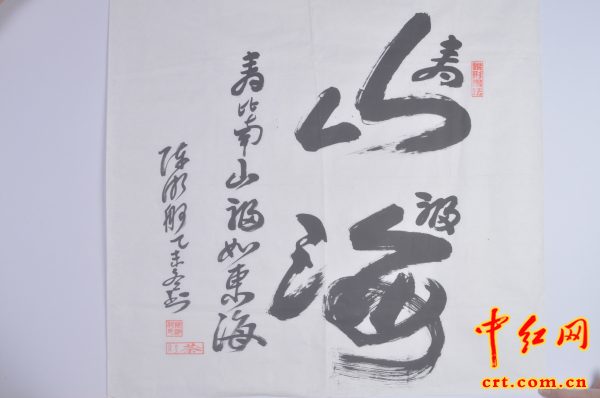 寿山福海
寿比南山福如東海
陈 乙未冬
中红网
crt.com.cn